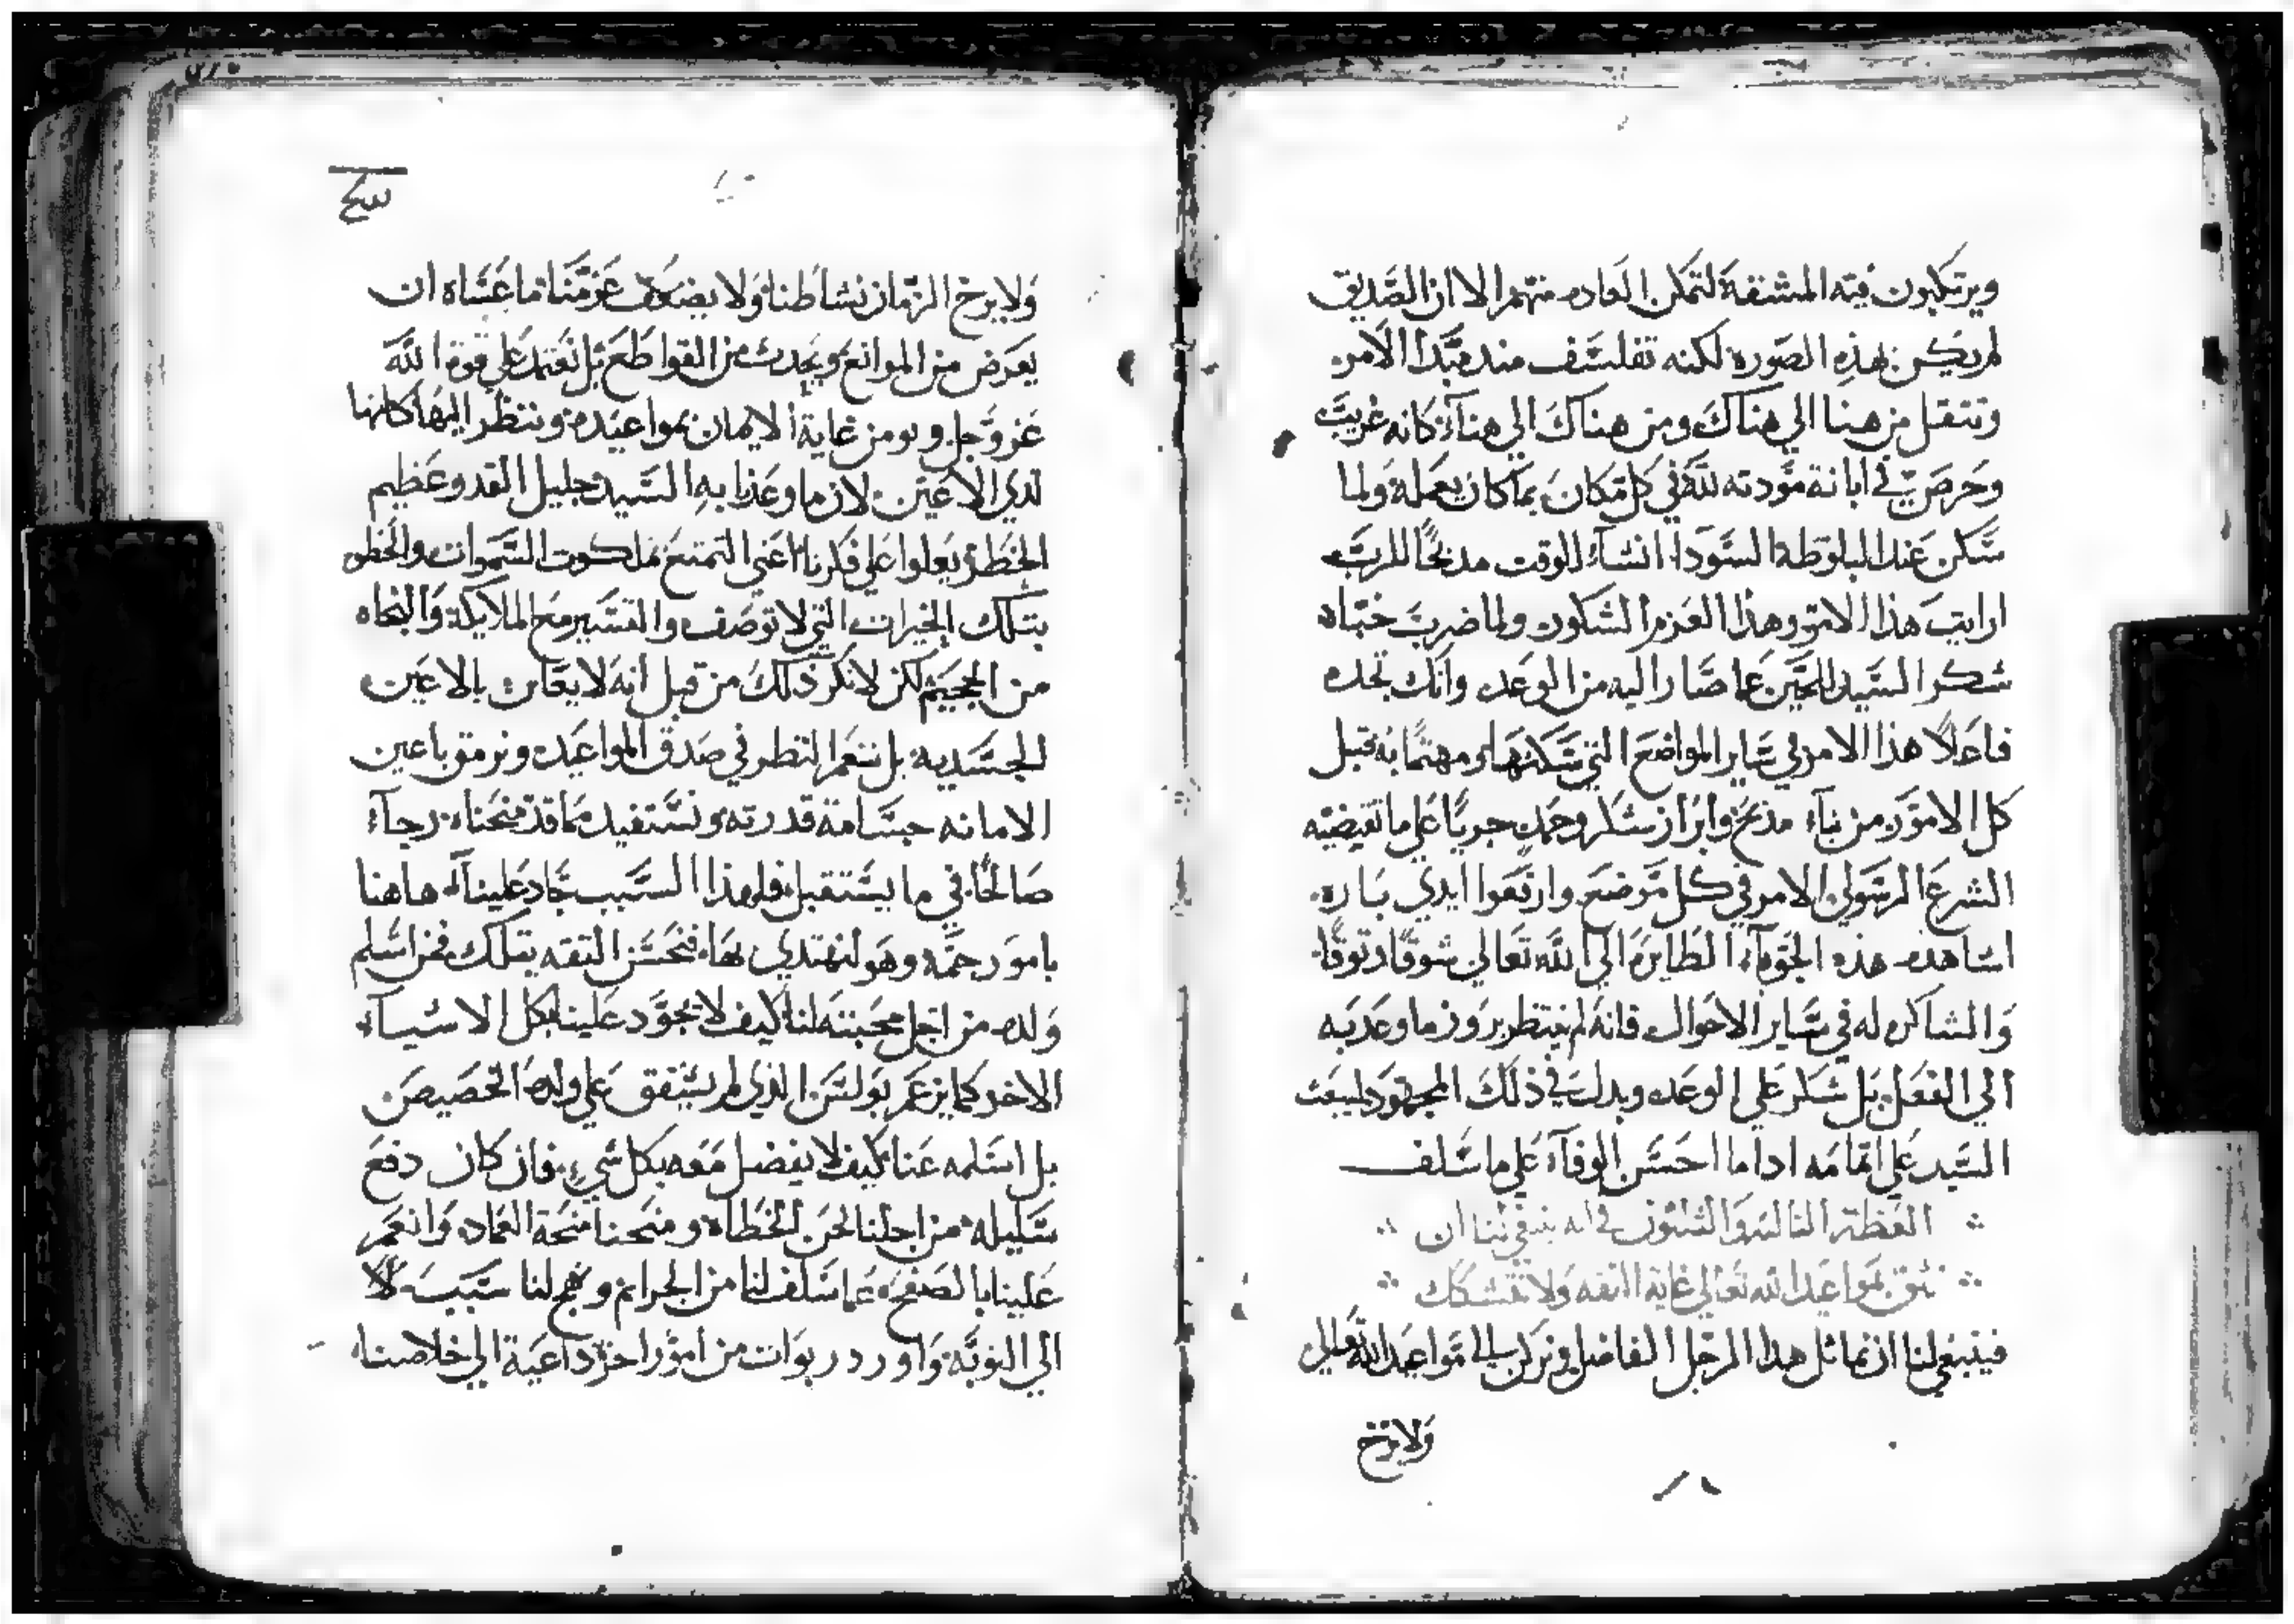 ويرتكبون فيه المشقة لتمكن العاده منهم الا ان الصديق
لم يكن بهذه الصوره لكنه تفلسف منذ مبدا الامر
وتنقل من هنا الي هناك ومن هناك الي هناء كانه غريب
وحرص في ابانة مودته لله في كل مكان بما كان يعمله ولما
سكن عند البلوطة السودا انشاء للوقت مدبحًا للرب
ارايت هذا الامر وهذا العزم الشكور ولما ضرب خباه
شكر السيد للحين عما صار اليه من الوعد وانك تجده
فاعلًا هذا الامر في ساير المواضع التي سكنها ومهتمًا به قبل
كل الامور من بناء مذبح وابراز شكر وحمد جريًا علي ما تقيضيه
الشرع الرسولي الامر في كل موضع وارفعوا ايدي باره
اشاهده هذه الحوباء الطايره الي الله تعالي شوقًا وتوقًا
والشاكره له في ساير الاحوال فانه لم ينتظر بروز ما وعد به
الي الفعل بل شكر علي الوعد وبدل في ذلك المجهود ليبعث
السيد علي اتمامه اداما احسن الوفاء علي ما سلف
العظة الثالثه والثلثون في انه ينبغي لنا ان
نثق بمواعيد الله تعالي غاية الثقه ولا نتشكك
فينبغي لنا ان نماثل هدا الرجل الفاضل ونركن الي مواعيد الله تعالي
ولا يرخ
ولا يرخ الزمان نشاطنا ولا يضعف عزمنا ما عساه ان
يعرض من الموانع ويحدث من القواطع بل نعتمد علي قوة الله
عز وجل ونومن غاية الايمان بمواعيده وننظر اليها كانها
لدي الاعين لان ما وعدنا به السيد جليل القدر وعظيم
الخطر يعلوا علي فكرنا اعني التمتع بملكوت السموات والحظو
بتلك الخيرات التي لا توصف والتسير مع الملايكة والنجاه
من الجحيم لكن لا نكر ذلك من قبل انه لا يعاين بالاعين
الجسديه بل ننعم النظر في صدق المواعيد ونرمق باعين
الامانه جسامة قدرته ونستفيد مما قد منحناه رجاء
صالحًا في ما يستقبل فلهذا السبب جاد علينا ها هنا
بامور جمه وهو لنهتدي بها فنحسن الثقه بتلك فمن اسلم
ولده من اجل محبته لنا كيف لا يجود علينا بكل الاشياء
الاخر كما يزعم بولس الذي لم يشفق علي ولده الخصيص
بل اسلمه عنا كيف لا يفضل معه بكل شيء فان كان دفع
سليله من اجلنا نحن الخطاه ومنحنا منحة العماد وانعم
علينا بالصفح عما سلف لنا من الجرايم ونهج لنا سبيلًا
الي التوبه واورد ربوات من امور اخر داعية الي خلاصنا